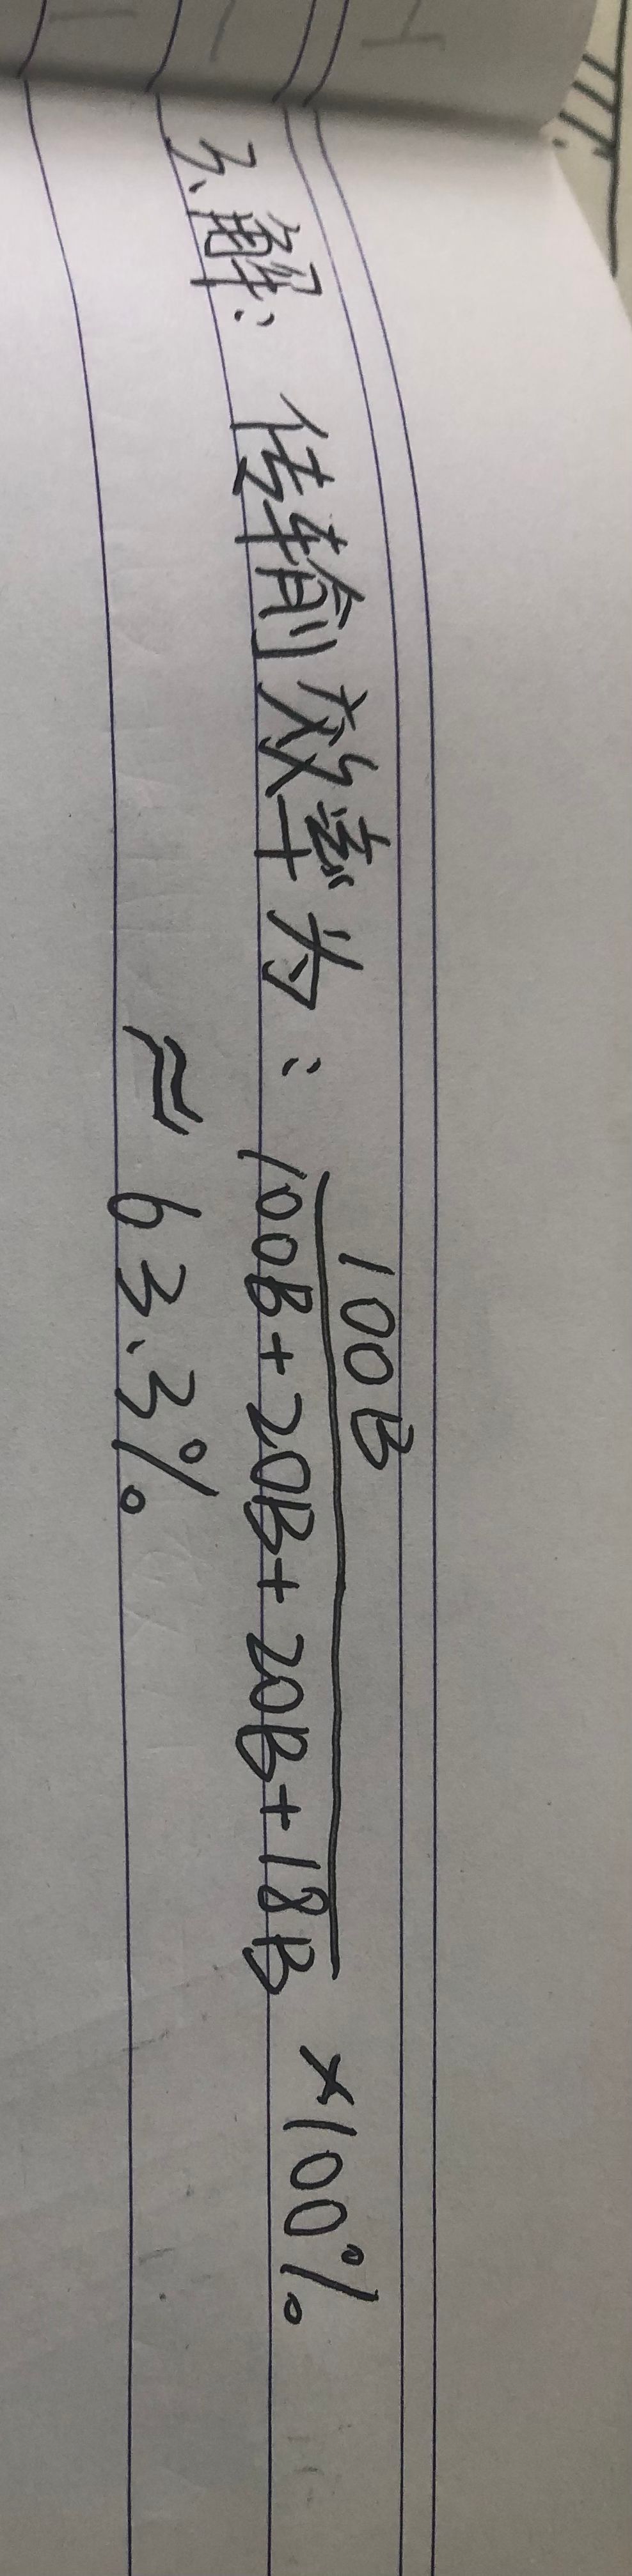 3.解：传输效率为：100B/(100B+20B+20B+18B) ×100%
≈ 63.3%